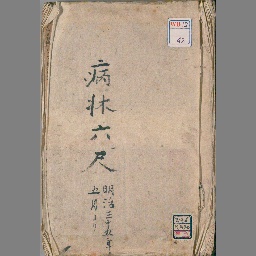 病牀六尺
明治三十五年
五月より
42